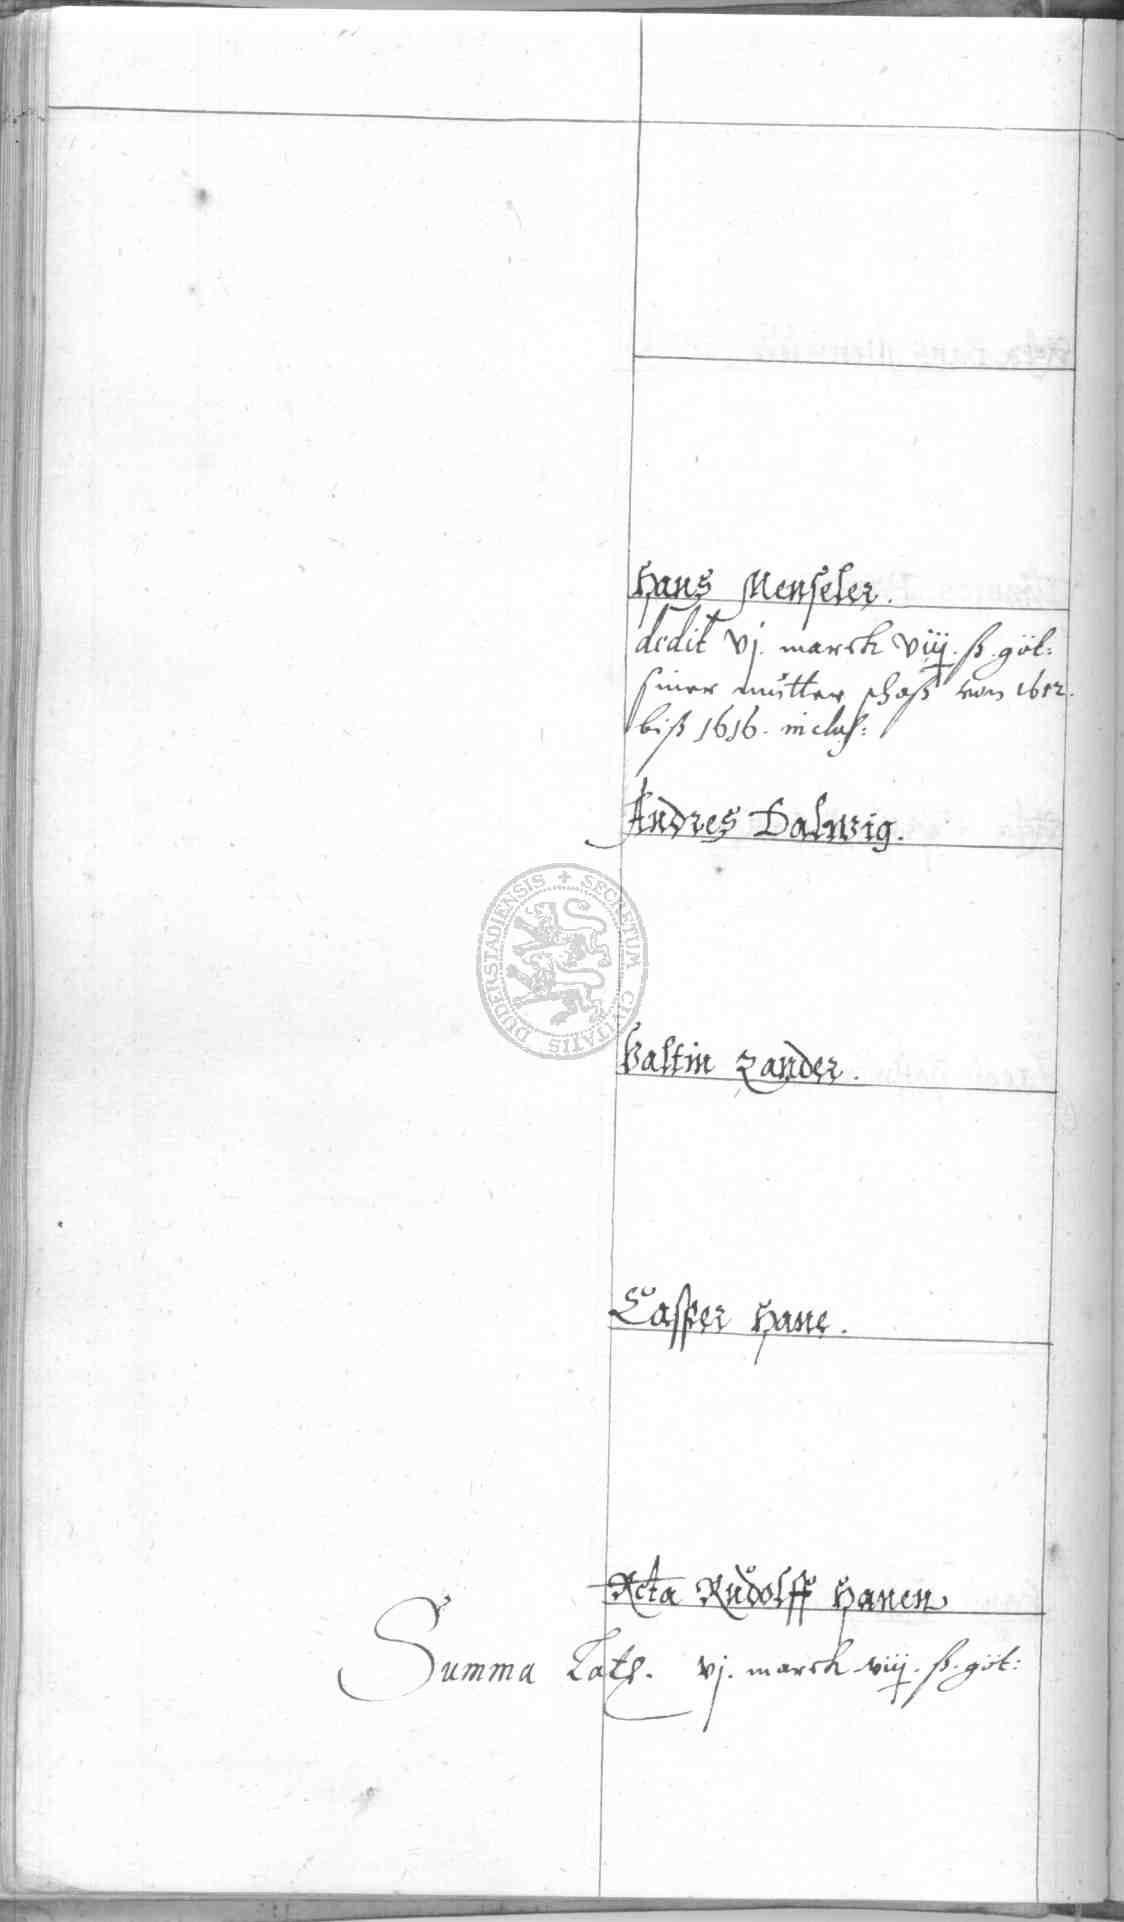 Hans Menseler.
dedit vj. marck viij. ß. göt:
siner mutter schoß von 1612.
biß 1616. inclus:
Andres Dalwig.
SECRETUM CIVITATIS DUDERSTADIENSIS
Valtin Zander.
Casper Hane.
Rcta Rudolff Hanen
Summa Lats. vj. marck viij. ß. göt: